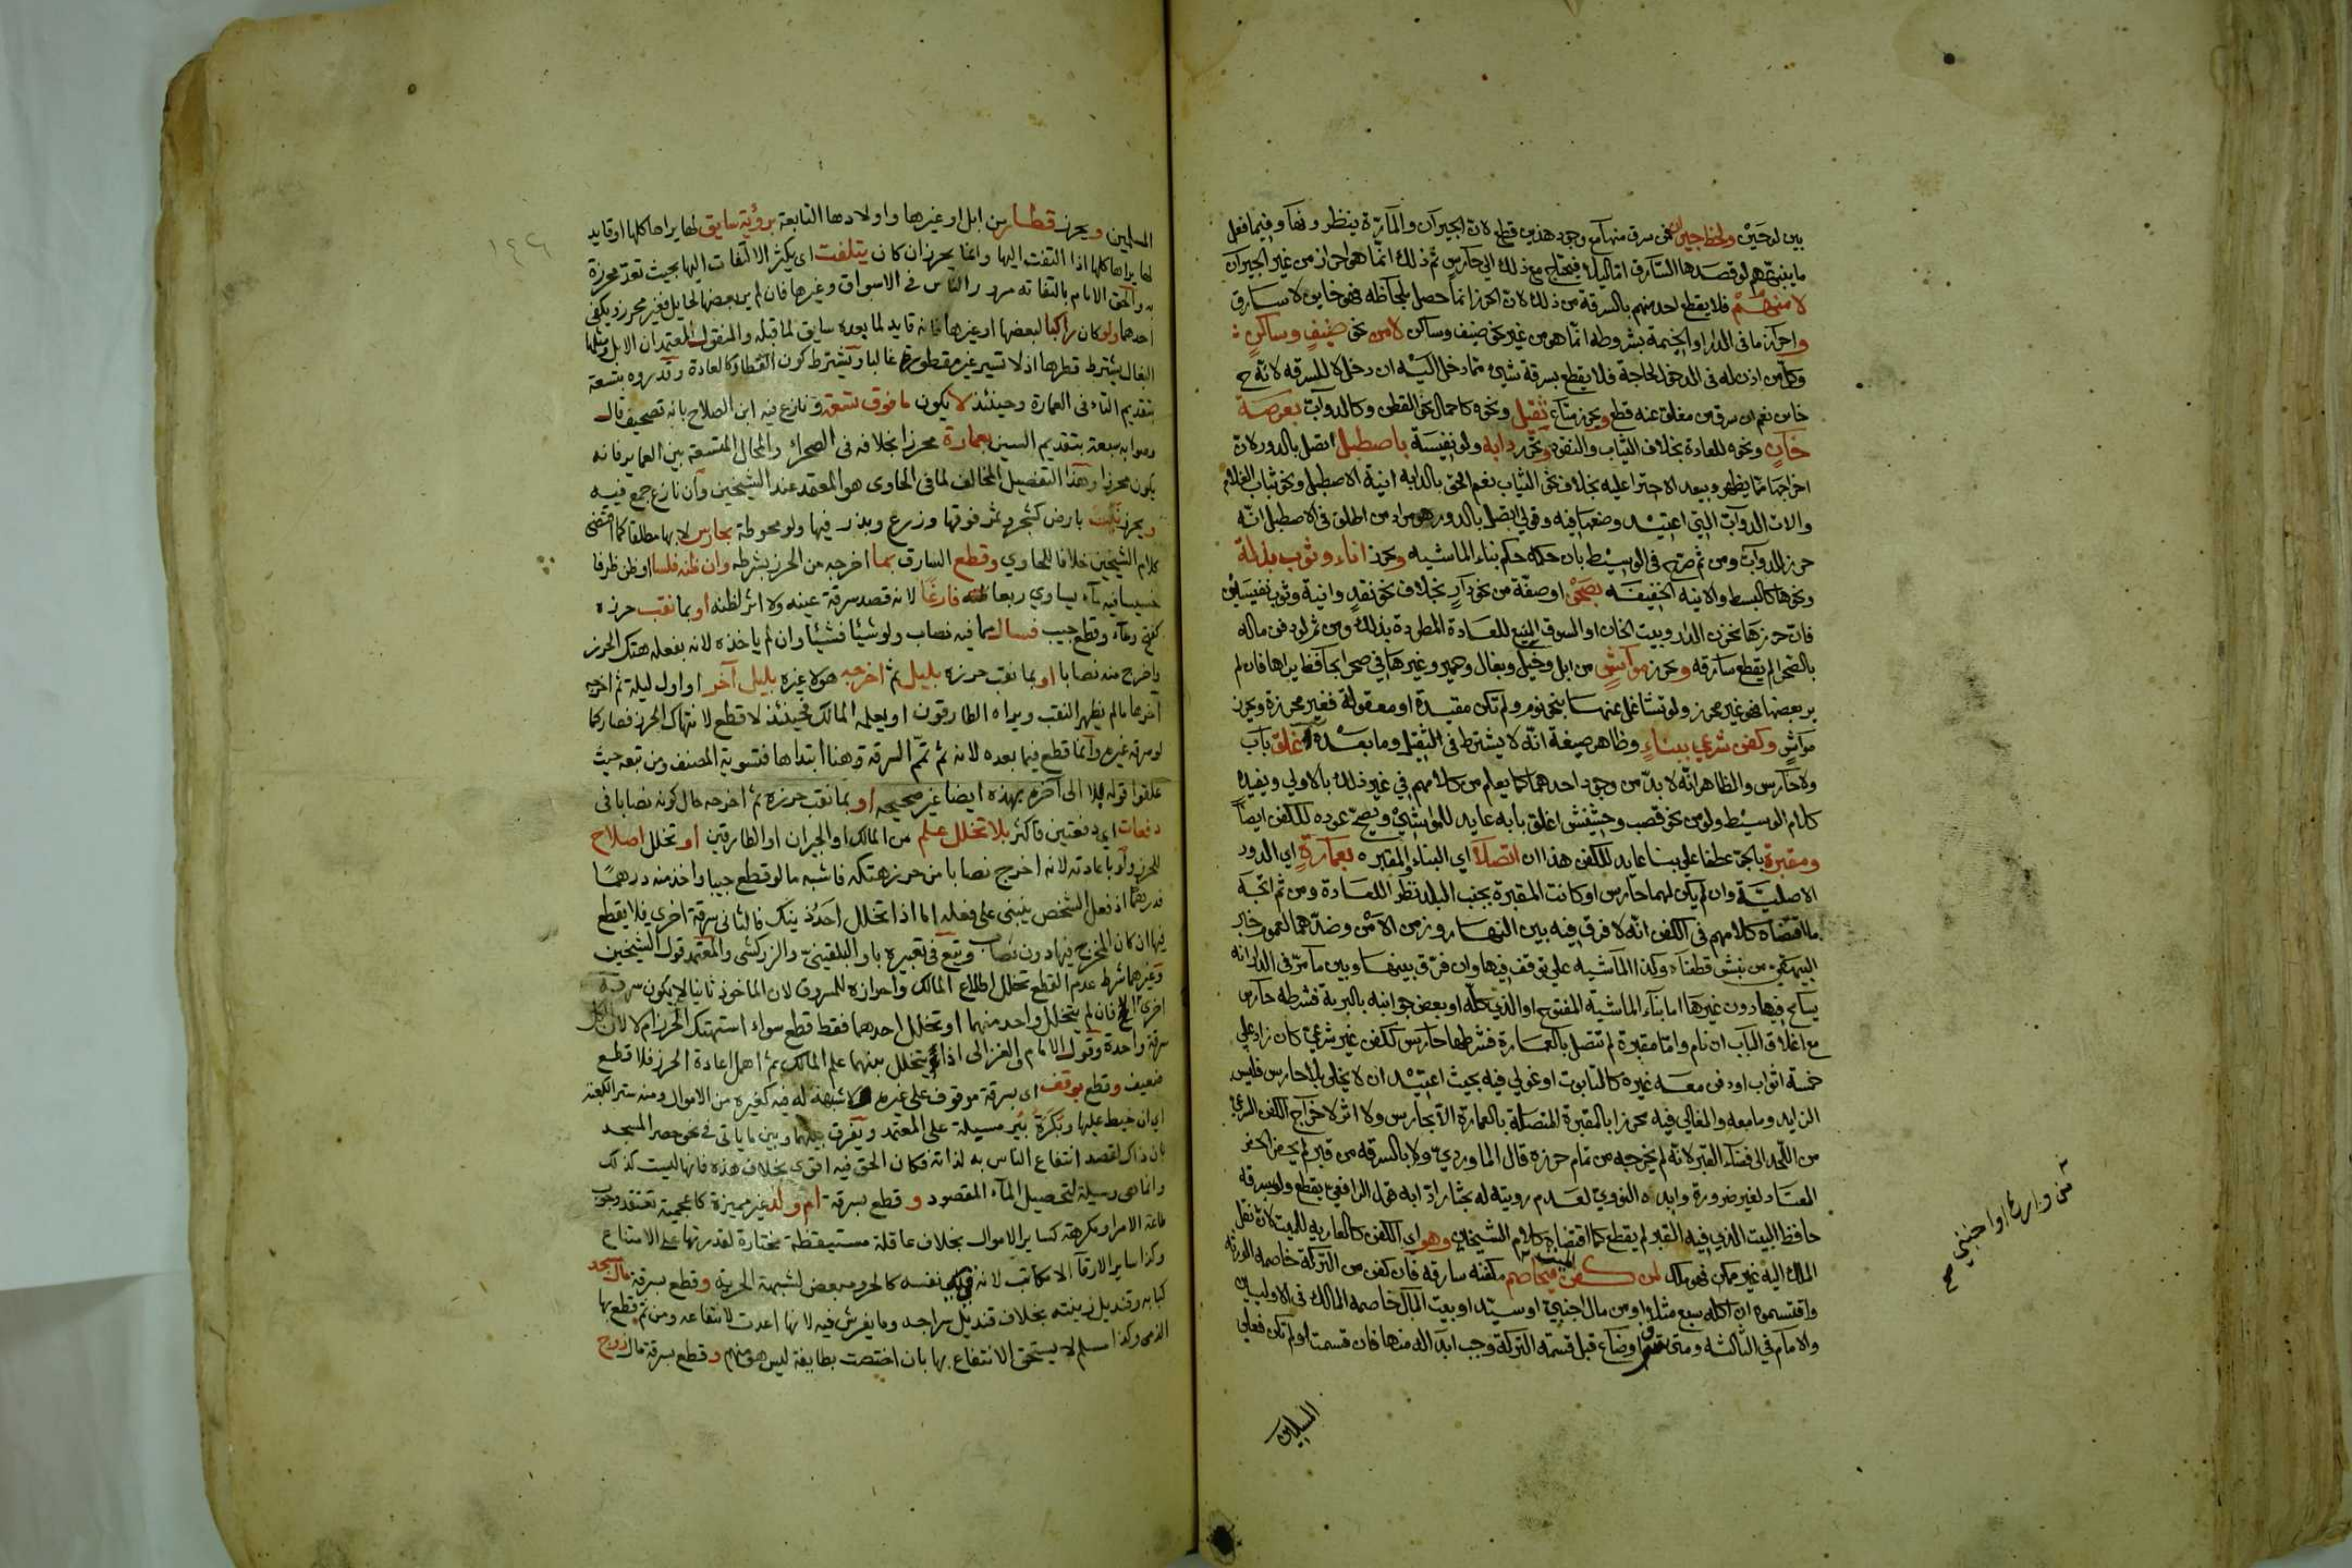 بين لوحين ولحظ جيران فمن سرق منها مع وجود هذين قطع لان الجيران والمارة ينظرونها وفيما فعل
ما ينبههم لو قصدها السارق اما ليلا فيحتاج مع ذلك الى حارس ثم ذلك انما هو احراز من غير الجيران
لا منهم فلا يقطع احد منهم بالسرقة من ذلك لان الحرز انما حصل بلحاظه فهو خاين لا سارق
واحرز ما فى الدار او الخيمة بشروطه انما هو من غير نحو ضيف وساكن لا من نحو ضيف وساكن
وكل من اذن له فى الدخول لحاجة فلا يقطع بسرقة شئ مما دخل اليه ان دخل لا للسرقه لانه ح
خاين نعم ان سرق من مغلق عنه قطع ويحرز متاع ثقيل ونحوه كاحمال نحو القطن وكالدواب بعرصة
خان ونحوه للعادة بخلاف الثياب والنقود ونحو دابة ولو نفيسة باصطبل اتصل بالدور لان
اخراجها مما يظهر ويبعد الاجترا عليه بخلاف نحو الثياب نعم الحق بالدابة انية الاصطبل ونحو ثياب الغلام
والات الدواب التى اعتيد وضعها فيه وقولى اتصل بالدور هو مراد من اطلق فى الاصطبل انه
حرز للدواب ومن ثم صرح فى الوسيط بان حكمه حكم بناء الماشيه ونحو اناء وثوب بذلة
ونحوها كالبسط والانيه الخفيفه بصحن او صفة من نحو دار بخلاف نحو نقد وانية وثوب نفيسين
فان حرزها مخزن الدار وبيت الخان او السوق المنيع للعادة المطردة بذلك ومن ثم لو دفن ماله
بالصحن لم يقطع سارقه ونحو مواشى من ابل وخيل وبغال وحمير وغيرها فى صحرا بحافظ يراها فان لم
ير بعضها فهو غير محرز ولو تشاغل عنها بنحو نوم ولم تكن مقيدة او معقولة فغير محرزة ويحرز
مواش وكفن شرعي ببناء وظاهر صيغة انه لا يشترط فى الثقيل وما بعده غلق باب
ولا حارس والظاهر انه لا بد من وجود احدهما كما يعلم من كلامهم في غير ذلك بالاولي ويفيده
كلام الوسيط ولو من نحو قصب وحشيش اغلق بابه عايد للمواشي ويصح عوده للكفن ايضا
ومقبرة بالجر عطفا على بنا عايد للكفن هذا ان اتصلا اي البناء والمقبره بعمارة اي الدور
الاصلية وان لم يكن لهما حارس او كانت المقبرة بجنب البلد نظرا للعادة ومن ثم اتجه
ما اقتضاه كلامهم فى الكفن انه لا فرق فيه بين النهار وزمن الامن وضدهما لعموم خبر
البيهقي من نبش قطعناه وكذا الماشيه على توقف فيها وان فرق بينها وبين ما مر فى الدار انه
يسامح فيها دون غيرها اما بناء الماشية المفتوح او الذي كله او بعض جوانبه بالبرية فشرطه حارس
مع اغلاق الباب ان نام واما مقبرة لم تتصل بالعمارة فشرطها حارس ككفن غير شرعي كان زاد على
خمسة اثواب او دفن معه غيره كالتابوت او غولي فيه بحيث اعتيد ان لا يخلى بلا حارس فليس
الزايد وما معه والمغالي فيه محرزا بالمقبرة المتصلة بالعمارة الا بحارس ولا اثر لاخراج الكفن الشرعي
من اللحد الى فضاء القبر لانه لم يخرجه من تمام حرزه قال الماوردي ولا بالسرقه من قبر لم يحفر الحفر
المعتاد لغير ضرورة وايده النووي لعدم رويته له بحثا رادا به قول الرافعي يقطع ولو سرقه
حافظ البيت الذي فيه القبر لم يقطع كما اقتضاه كلام الشيخين وهو اي الكفن كالعاريه للميت لان نقل
الملك اليه غير ممكن فهو ملك لمن كفن الميت فيخاصم مكفنه سارقه فان كفن من التركة خاصمه الورثه
واقتسموه ان اكله سبع مثلا او من مال اجنبي او سيد او بيت المال خاصمه المالك فى الاوليين
والامام في الثالثه ومتى سرق او ضاع قبل قسمة التركة وجب ابداله منها فان قسمت او لم تكن فعلى
من وارث او اجنبي صح
المسلمين
١٤٢٦
المسلمين ويحرز قطار من ابل او غيرها واولادها التابعة برؤية سايق لها يراها كلها او قايد
لها يراها كلها اذا التفت اليها وانما يحرز ان كان يتلفت اى يكثر الالتفات اليها بحيث تعد محرزة
به والحق الامام بالتفاته مرور الناس فى الاسواق وغيرها فان لم ير بعضها لحايل فغير محرز ويكفى
احدهما ولو كان راكبا لبعضها او غيرها فانه قايد لما بعده سايق لما قبله والمنقول المعتمد ان الابل ومثلها
البغال يشترط قطرها اذ لا تسير غير مقطورة غالبا ويشترط كون القطار كالعادة وقدروه بتسعة
بتقديم التاء فى العمارة وحينئذ لا يكون ما فوق تسعة ونازع فيه ابن الصلاح بانه تصحيف قال
وصوابه سبعة بتقديم السين بعمارة محرزا بخلافه فى الصحراء والمحال المتسعة بين العماير فانه
يكون محرزا وهذا التفصيل المخالف لما فى الحاوى هو المعتمد عند الشيخين وان نازع جمع فيه
ويحرز نابت بارض كشجر وثمر فوقها وزرع وبذر فيها ولو محوطة بحارس لا بها مطلقا كما اقتضى
كلام الشيخين خلافا للحاوي وقطع السارق بما اخرجه من الحرز بشرطه وان ظنه فلسا او ظن ظرفا
خسيسا فيه ماء يساوي ربعا ظنه فارغا لانه قصد سرقة عينه ولا اثر لظنه او بما نقب حرزه
كفتح وعاء وقطع جيب فسال مما فيه نصاب ولو شيئا فشيئا وان لم ياخذه لانه بفعله هتك الحرز
واخرج منه نصابا او بما نقب حرزه بليل ثم اخرجه هو لا غيره بليل آخر او اول ليلة ثم اخرجه
آخرها ما لم يظهر النقب ويراه الطارقون او يعلمه المالك فحينئذ لا قطع لانتهاك الحرز فصار كما
لو سرقه غيره وانما قطع فيما بعده لانه ثم تمم السرقة وهنا ابتداها فتسوية المصنف ومن تبعه حيث
علقوا قوله بلا الى آخره بهذه ايضا غير صحيحه او بما نقب حرزه ثم اخرجه حال كونه نصابا فى
دفعات اي دفعتين فاكثر بلا تخلل علم من المالك او الجيران او الطارقين او تخلل اصلاح
للحرز ولو باعادته لانه اخرج نصابا من حرز هتكه فاشبه ما لو قطع جيبا واخذ منه درهما
فدرهما اذ فعل الشخص ينبنى على فعله اما اذا تخلل احد ذينك فالثانى سرقة اخري فلا يقطع
فيها ان كان المخرج فيها دون نصاب وتبع فى تعبيره باو البلقيني والزركشى والمعتمد قول الشيخين
وغيرهما شرط عدم القطع تخلل اطلاع المالك واحرازه للمسروق لان الماخوذ ثانيا لا يكون سرقة
اخرى الا فان لم يتخلل واحد منهما او تخلل احدهما فقط قطع سواء استهتك الحرز ام لا لان الكل
سرقة واحدة وقول الامام والغزالى اذا لم يتخلل بينهما علم المالك ثم اهمل اعادة الحرز فلا قطع
ضعيف وقطع بوقف اى بسرقة موقوف على غيره لا شبهة له فيه كغيره من الاموال ومنه ستر الكعبة
اى ان خيط عليها وبكرة بئر مسبلة على المعتمد ويفرق بينهما وبين ما ياتى فى نحو حصر المسجد
بان ذاك لقصد انتفاع الناس به لذاته فكان الحق فيه اقوى بخلاف هذه فانها ليست كذلك
وانما هى وسيلة لتحصيل الماء المقصود وقطع بسرقة ام ولد غير مميزة كاعجمية تعتقد وجوب
طاعة الامر او مكرهة كساير الاموال بخلاف عاقلة مستيقظة مختارة لقدرتها على الامتناع
وكذا ساير الارقاء لا مكاتب لانه فى يد نفسه كالحر ومبعض لشبهة الحرية وقطع بسرقة مال مسجد
كبابه وقنديل زينته بخلاف قنديل سراجه وما يفرش فيه لانها اعدت لانتفاعه ومن ثم قطع بها
الذمى وكذا مسلم لا يستحق الانتفاع بها بان اختصت بطايفة ليس هو منهم وقطع بسرقة مال زوج